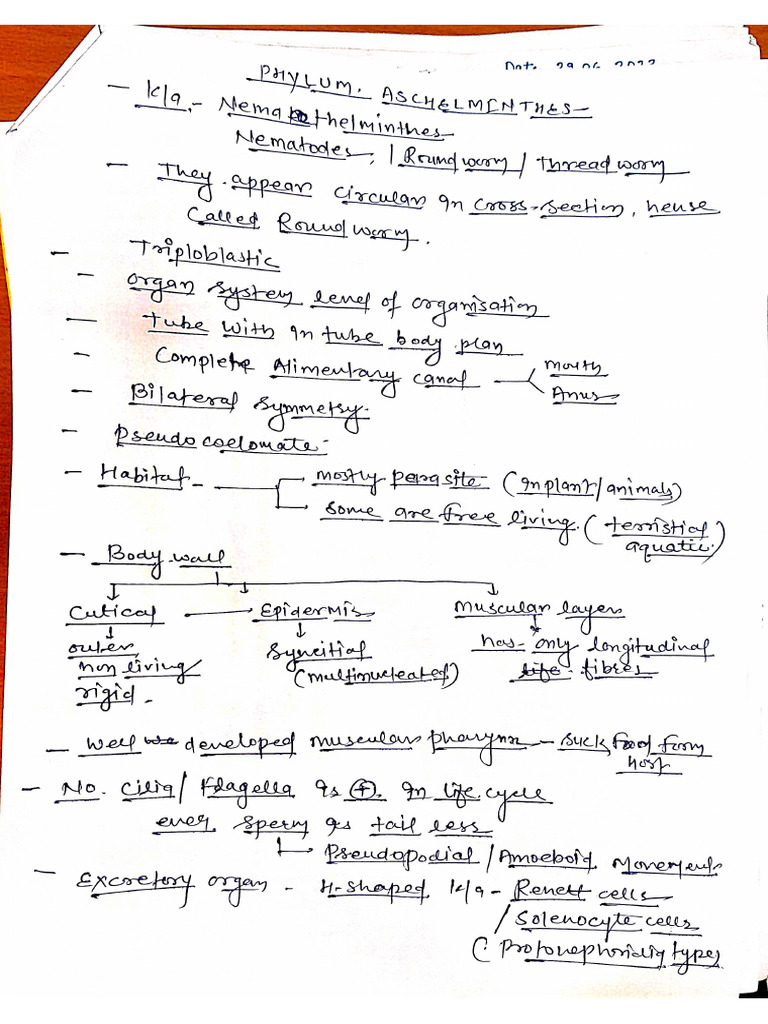 PHYLUM. ASCHELMINTHES
- K/a.- Nemathelminthes
Nematodes, / Roundworm / Threadworm
- They appear circular in cross-section, hense
called Roundworm.
- Triploblastic
- organ system level of organisation
- tube with in tube body plan
- Complete Alimentary canal
mouth
Anus
- Bilateral symmetry.
- Pseudocoelomate-
- Habitat -
mostly parasite (in plant/animals)
some are free living. (terristial
aquatic.)
- Body wall
Cutical
Epidermis
muscular layers
outer
non living
rigid -
syncitial
(multinucleated)
has only longitudinal
fibres
- Well developed muscular pharynx - suck food form
host
- No. cilia/ Flagella is (+). in life cycle
even sperm is tail less
Pseudopodial / Amoeboid Movements
- Excretory organ - H-shaped K/a - Renett cells
/ Solenocyte cells
(Protonephridia types